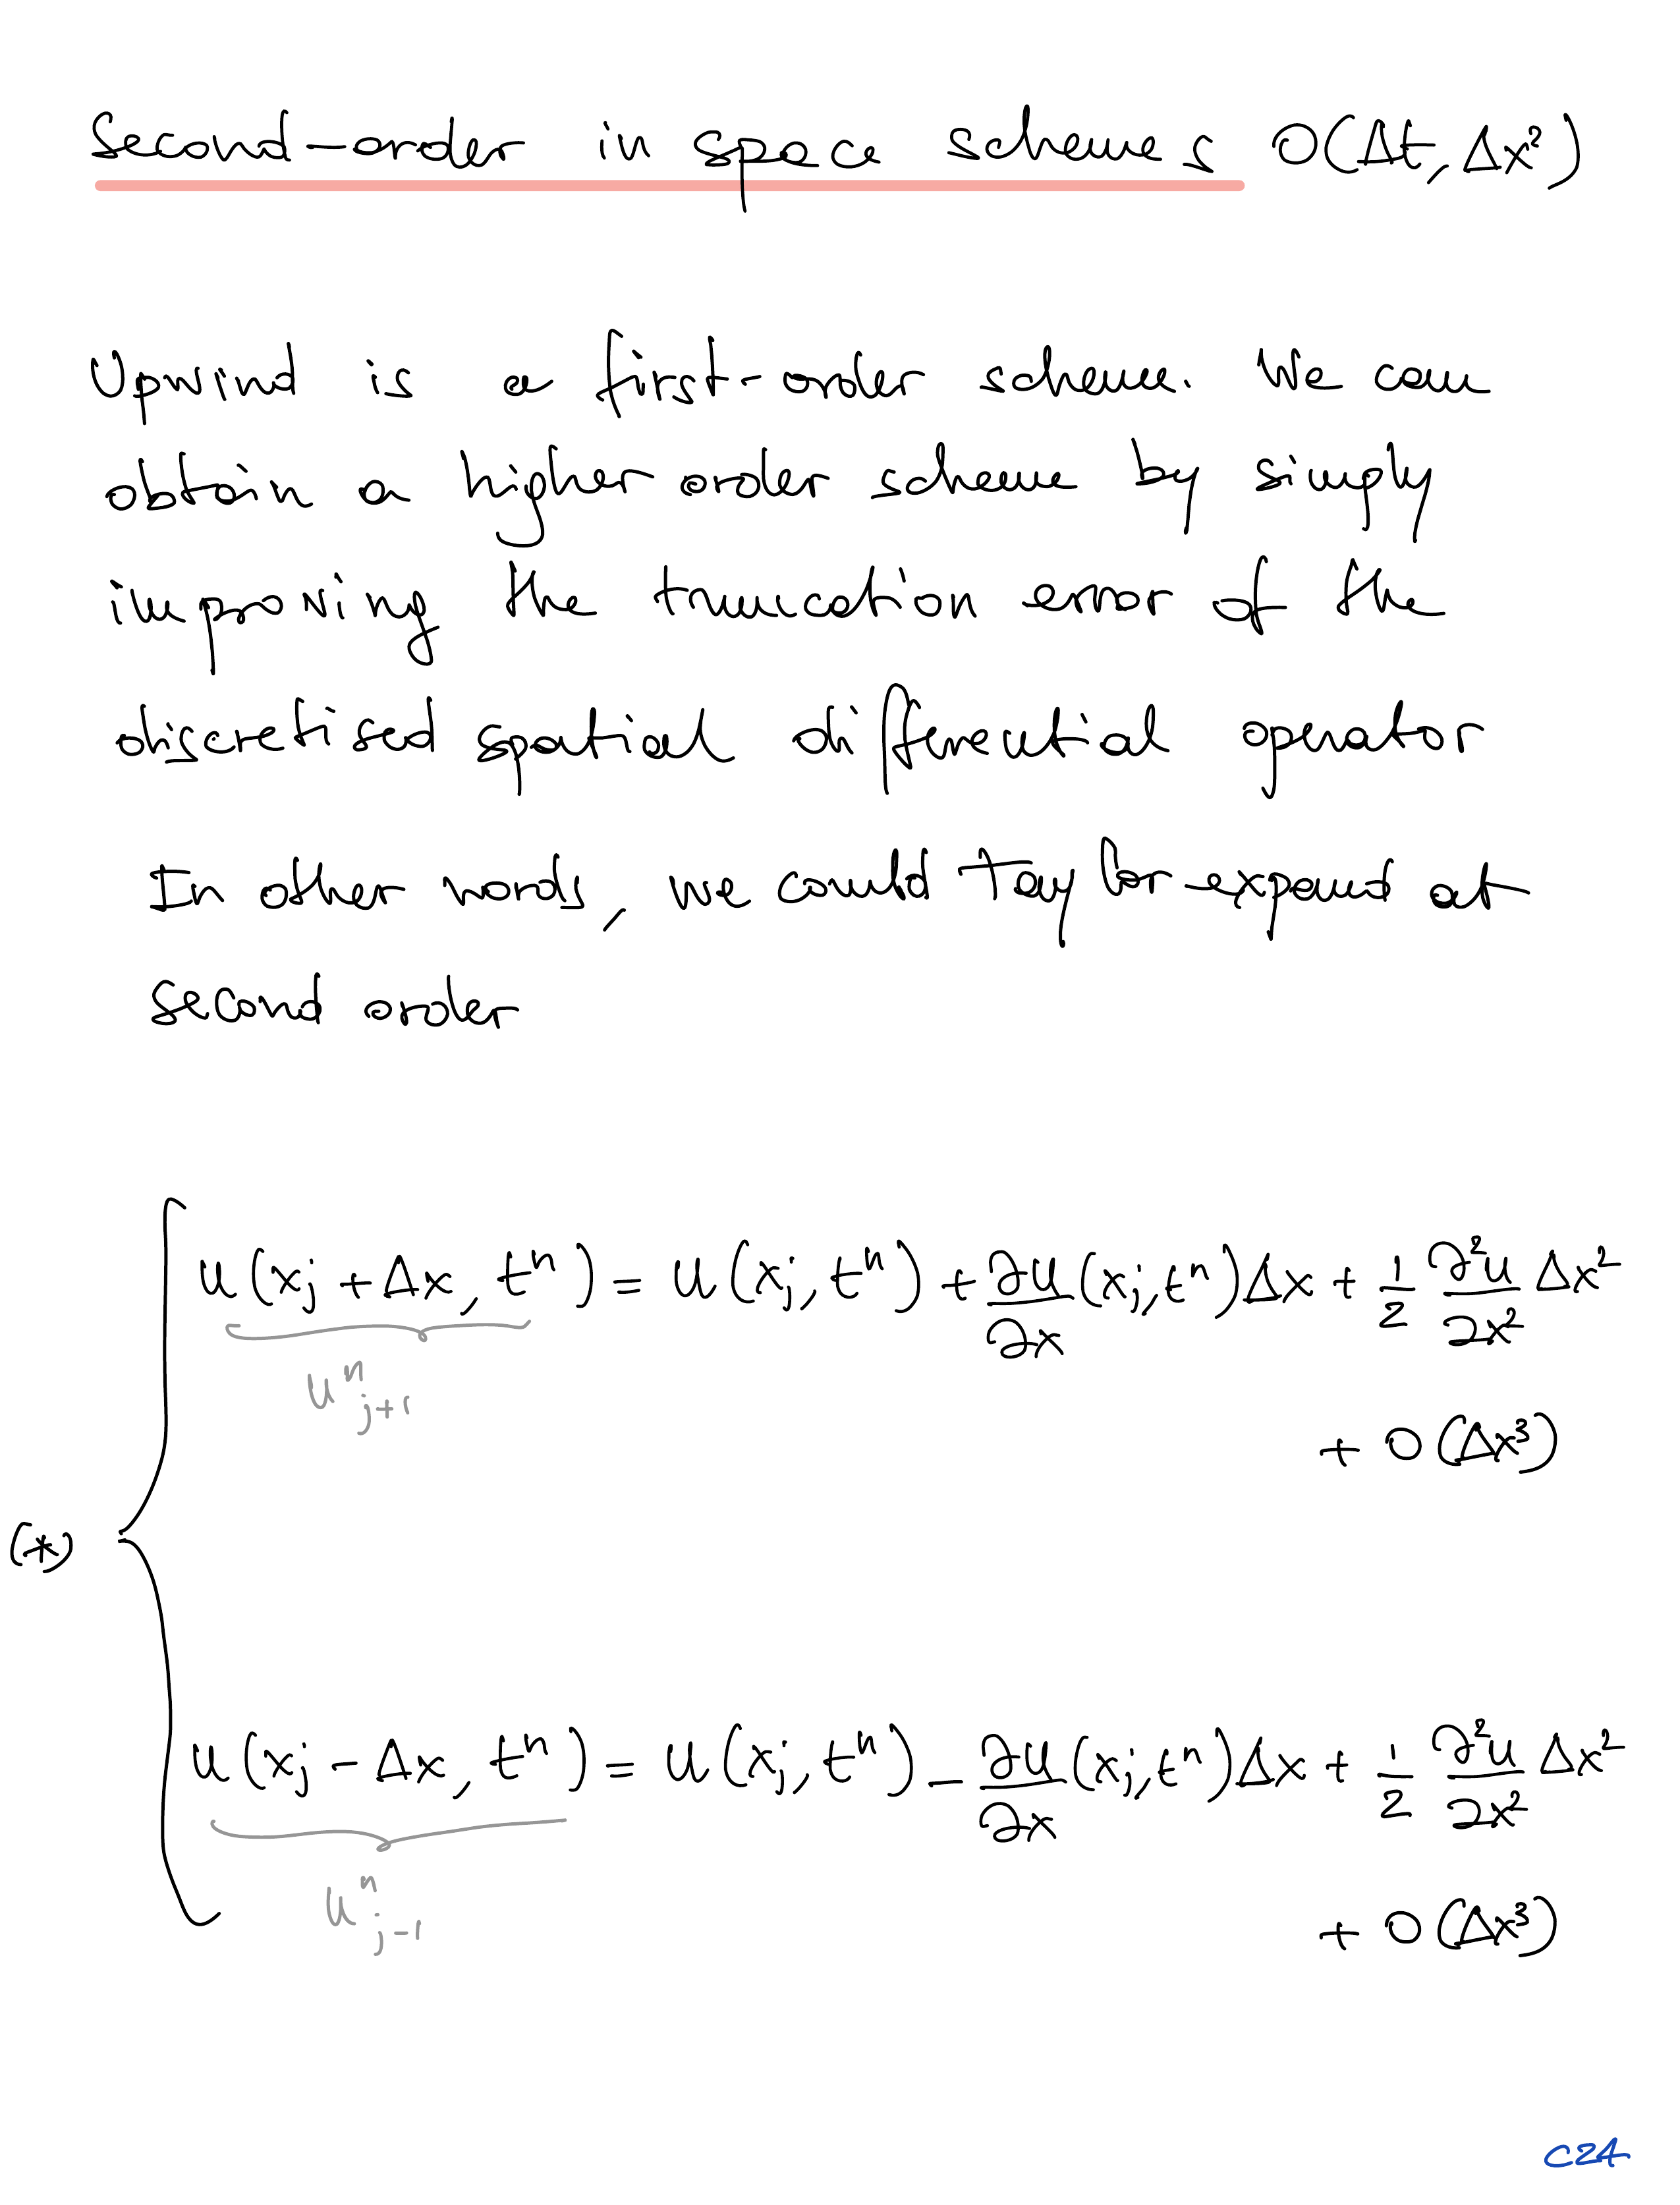 Second-order in space schemes O(Δt, Δx²)
Upwind is a first-order scheme. We can
obtain a higher order scheme by simply
improving the truncation error of the
discretised spatial differential operator
In other words, we could Taylor-expand at
second order
u(xⱼ + Δx, tⁿ) = u(xⱼ, tⁿ) + ∂u/∂x (xⱼ, tⁿ) Δx + 1/2 ∂²u/∂x² Δx²
uⁿⱼ₊₁
+ O(Δx³)
(*)
u(xⱼ - Δx, tⁿ) = u(xⱼ, tⁿ) - ∂u/∂x (xⱼ, tⁿ) Δx + 1/2 ∂²u/∂x² Δx²
uⁿⱼ₋₁
+ O(Δx³)
C24